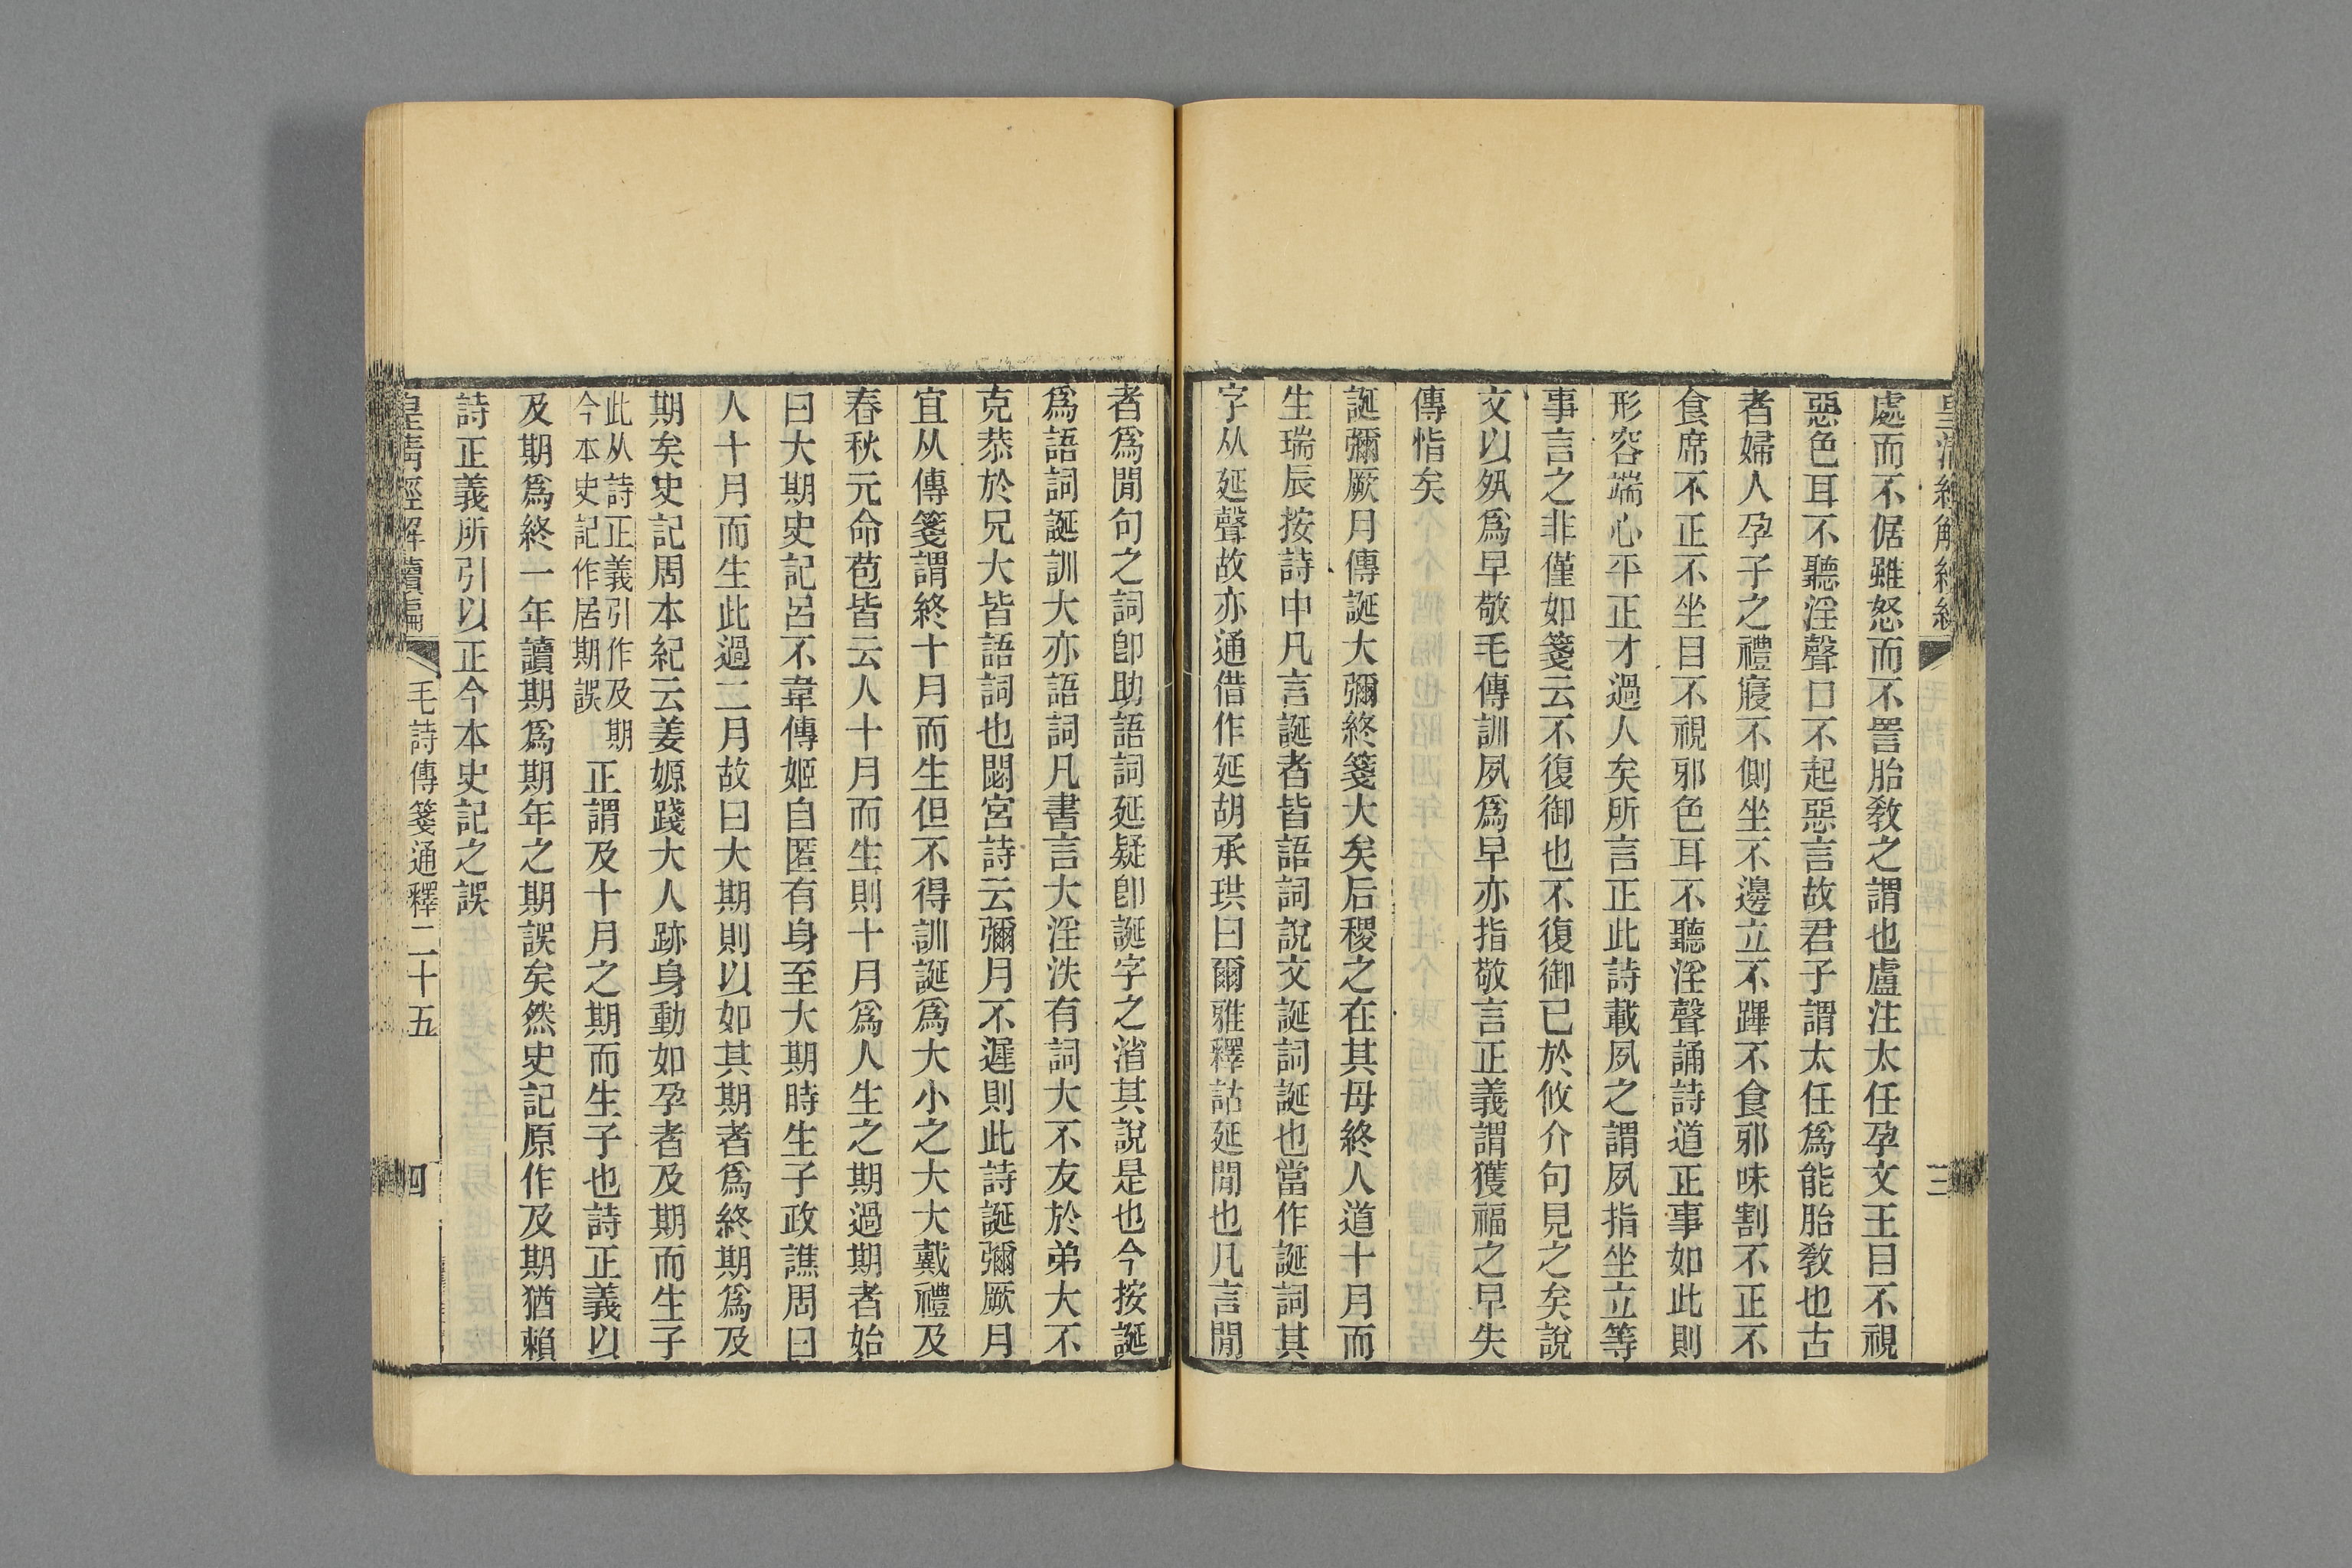 處而不倨雖怒而不詈胎敎之謂也盧注太任孕文王目不視
惡色耳不聽淫聲口不起惡言故君子謂太任爲能胎敎也古
者婦人孕子之禮寢不側坐不邊立不蹕不食邪味割不正不
食席不正不坐目不視邪色耳不聽淫聲誦詩道正事如此則
形容端心平正才過人矣所言正此詩載夙之謂夙指坐立等
事言之非僅如箋云不復御也不復御已於攸介句見之矣說
文以夙爲早敬毛傳訓夙爲早亦指敬言正義謂獲福之早失
傳恉矣
誕彌厥月傳誕大彌終箋大矣后稷之在其母終人道十月而
生瑞辰按詩中凡言誕者皆語詞說文誕詞誕也當作誕詞其
字从延聲故亦通借作延胡承珙曰爾雅釋詁延閒也凡言閒
者爲閒句之詞卽助語詞延疑卽誕字之渻其說是也今按誕
爲語詞誕訓大亦語詞凡書言大淫泆有詞大不友於弟大不
克恭於兄大皆語詞也閟宮詩云彌月不遲則此詩誕彌厥月
宜从傳箋謂終十月而生但不得訓誕爲大小之大大戴禮及
春秋元命苞皆云人十月而生則十月爲人生之期過期者始
曰大期史記呂不韋傳姬自匿有身至大期時生子政譙周曰
人十月而生此過二月故曰大期則以如其期者爲終期爲及
期矣史記周本紀云姜嫄踐大人跡身動如孕者及期而生子
此从詩正義引作及期
今本史記作居期誤
正謂及十月之期而生子也詩正義以
及期爲終一年讀期爲期年之期誤矣然史記原作及期猶賴
詩正義所引以正今本史記之誤
皇淸經解續編
毛詩傳箋通釋二十五
四